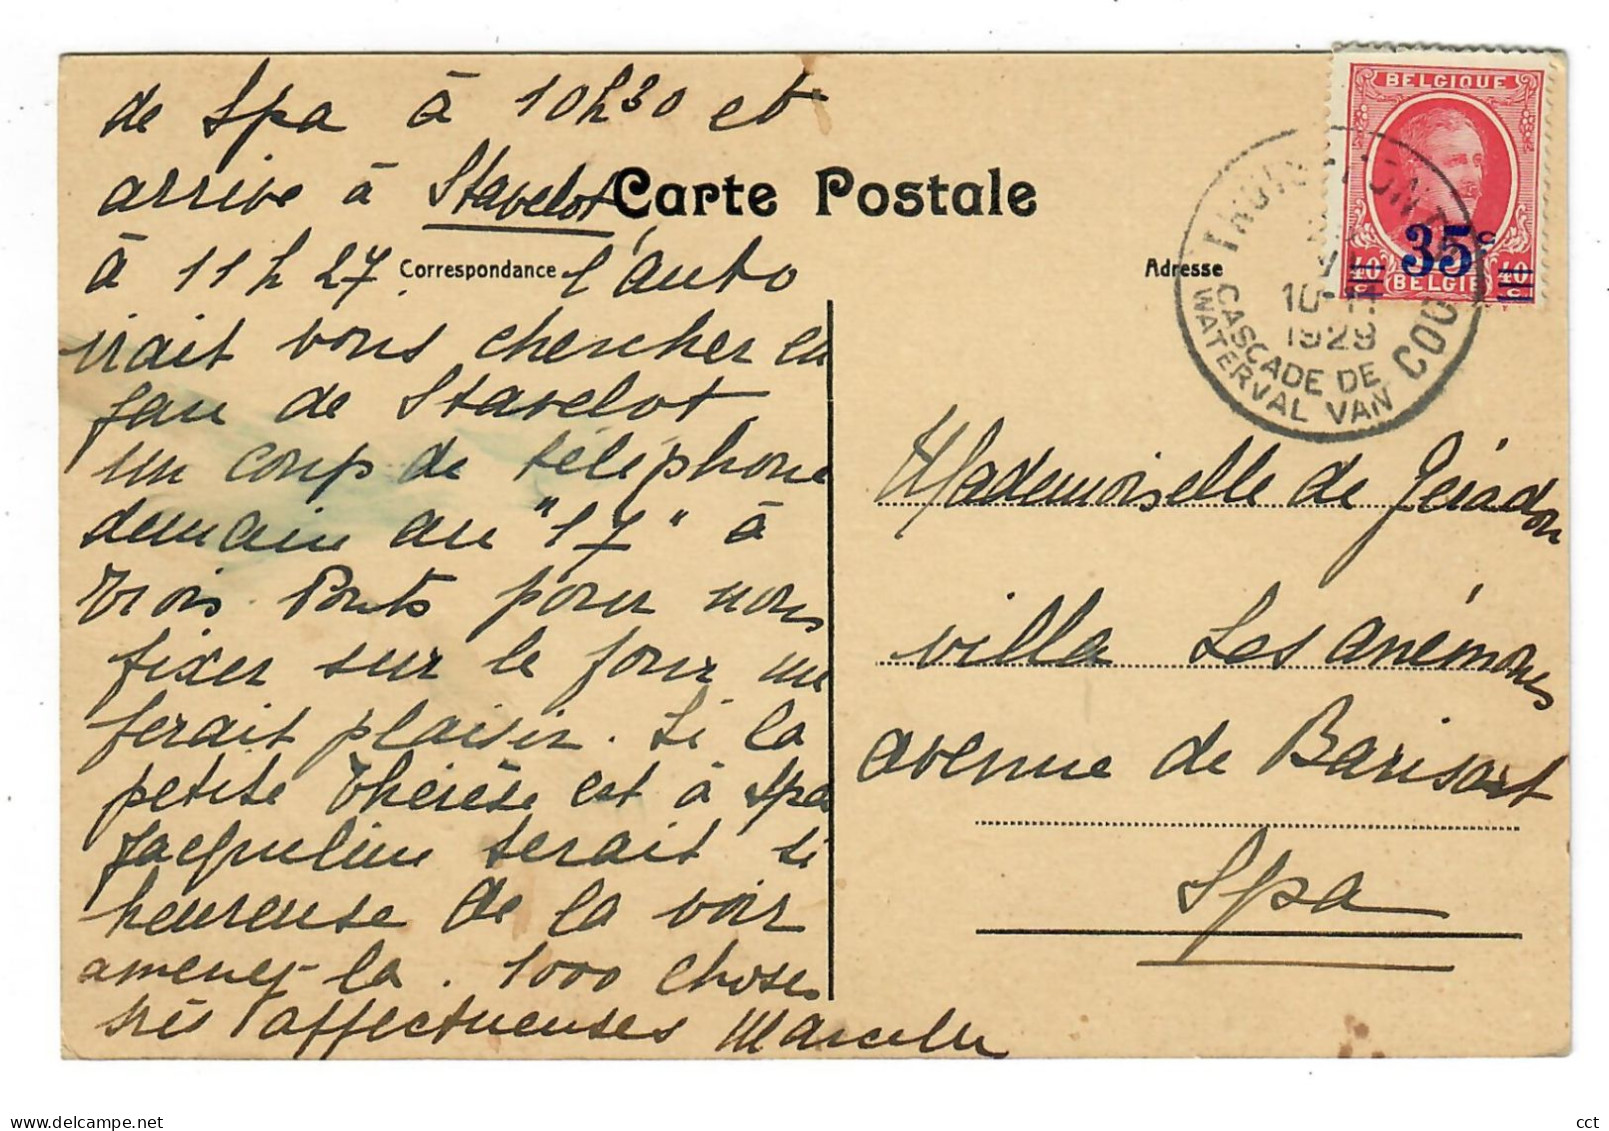 de Spa à 10h30 et
arrive à Stavelot
à 11h27. l'auto
irait vous chercher en
gare de Stavelot,
un coup de téléphone
demain au "17" à
Trois-Ponts pour nous
fixer sur le jour me
ferait plaisir. Si la
petite Thérèse est à Spa
Jacqueline serait si
heureuse de la voir
amenez-la. 1000 choses
très affectueuses Marcelle
Carte Postale
Correspondance
Adresse
BELGIQUE
35c
40 c BELGIË 40 c
TROIS-PONTS
10-11
1929
COO
CASCADE DE
WATERVAL VAN
Mademoiselle de Géradon
villa Les Anémones
avenue de Barisart
Spa
https://www.delcampe.net
cct